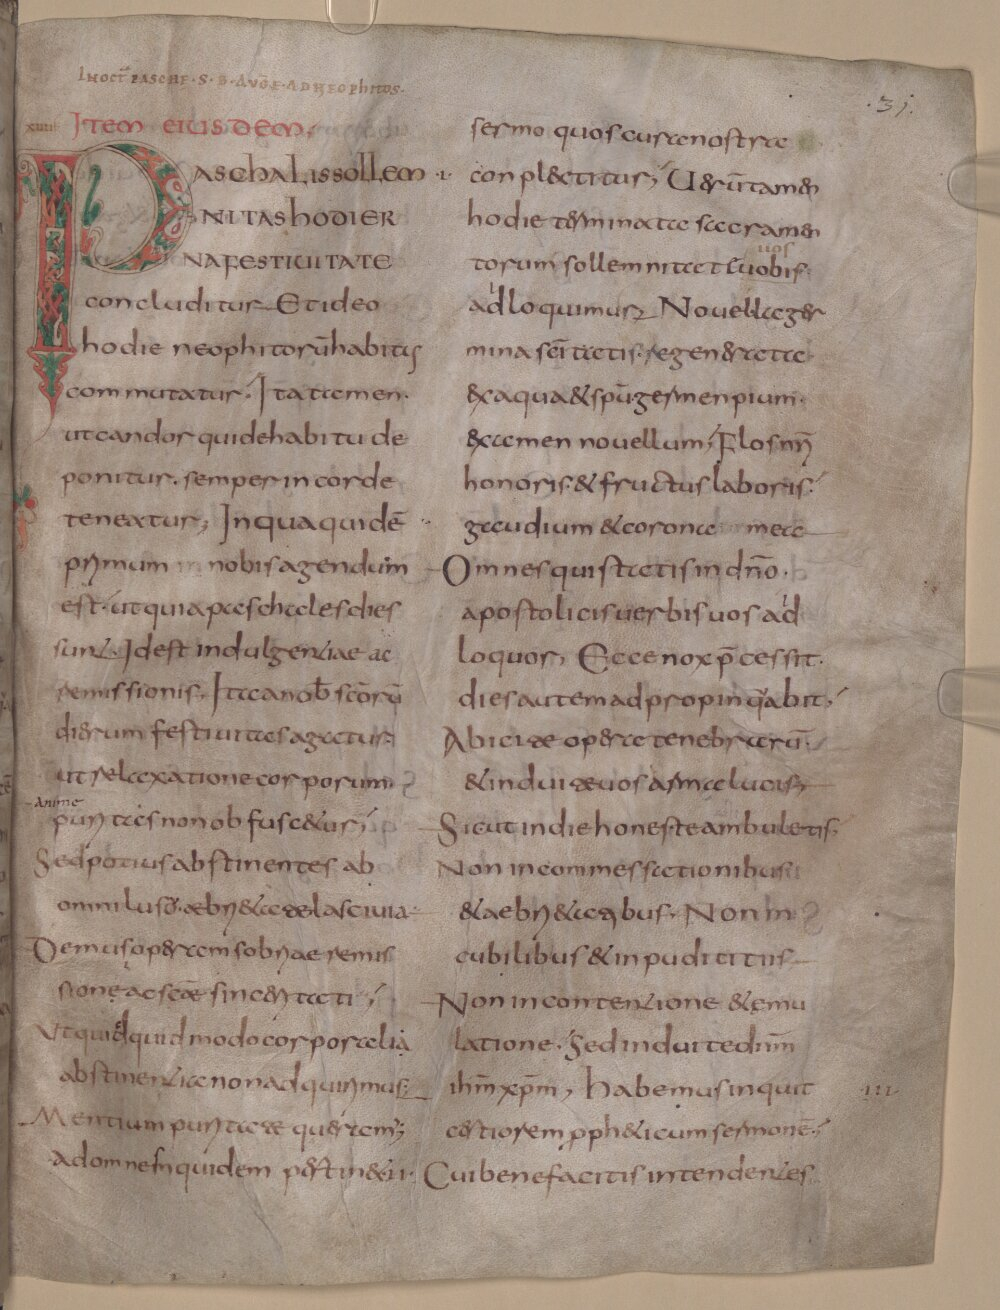 IN OCT̄ PASCHE · S · B · AUḠ · AD NEOPHITOS ·
· 31 ·
XVIII ITEM EIUSDEM;
PASCHALIS SOLLEM
NITAS HODIER
NA FESTIVITATE
concluditur Et ideo
hodie neophitorū habitus
commutatur; Ita tamen·
ut candor qui de habitu de
ponitur· semper in corde
teneatur; In qua quidē
primum nobis agendum
est· ut quia paschales dies
sunt Id est indulgentiae ac
remissionis; Ita a nob̄ sc̄orū
dierum festivitas agatur
ut relaxatione corporum
anime
puritas non obfuscetur;
Sed potius abstinentes ab
omni luxu· aebrietate lascivia
Demus operam sobriae remis
sione ac sc̄ae sinceritati;
Ut quidquid modo corporali a
abstinentia non adquirimus
Mentium puritate queramꝰ;
Ad omnes quidem pertinet ·i·
sermo quos cura nostra
conplectitur; Verūtamen
hodie terminata sacramen
torum sollemnitate vobis
vos
adloquimur Novella ger
mina sc̄itatis· regenerata
ex aqua & sp̄u· germen pium·
examen novellum; Flos nr̄i
honoris & fructus laboris;
gaudium & corona mea
Omnes qui statis in dn̄o·
apostolicis verbis vos ad
loquor; Ecce nox p̄cessit·
dies autem adpropinquabit;
Abicite opera tenebrarū·
& induite vos arma lucis;
Sicut in die honeste ambuletis;
Non in commessationibus
& aebrietatibus· Non in
cubilibus & inpudicitiis
Non in contentione & emu
latione· Sed induite dn̄m
ih̄m xp̄m; Habemus inquit III
certiorem ꝓph&icum sermonē;
Cui bene facitis intendentes